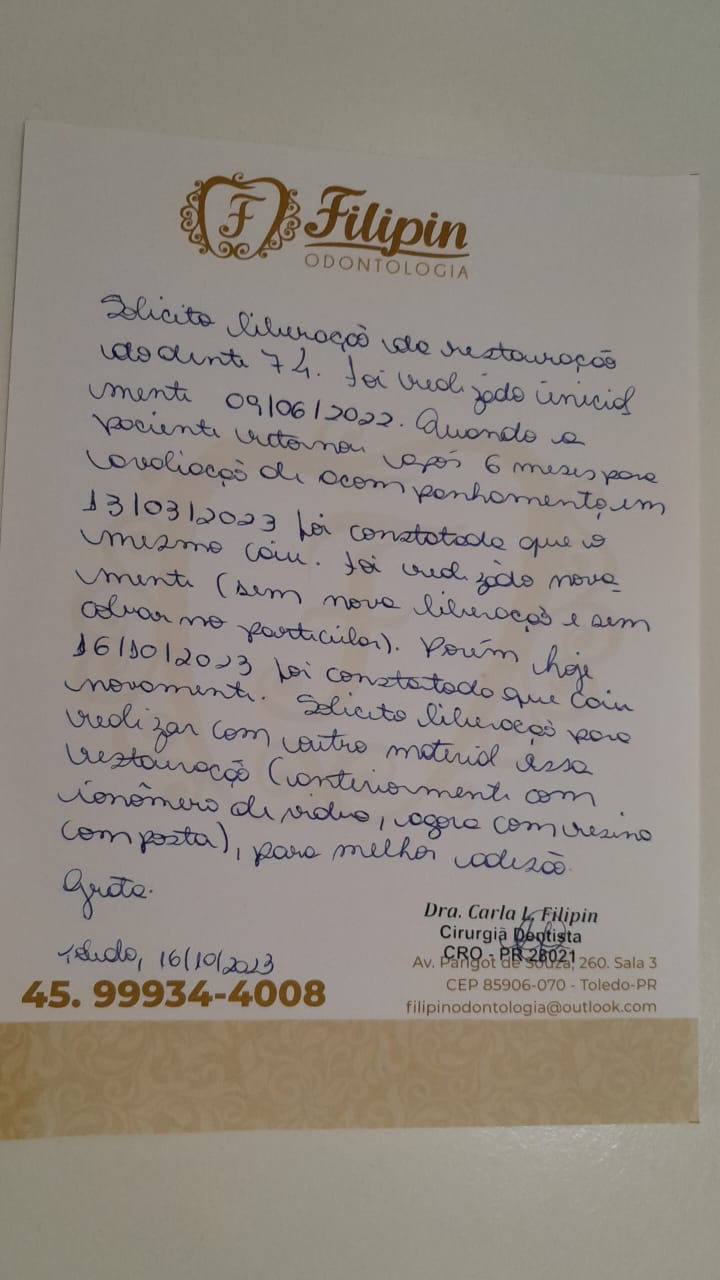 F
Filipin
ODONTOLOGIA
Solicito liberação da restauração
do dente 74. Foi realizado inicial
mente 09/06/2022. Quando a
paciente retornou após 6 meses para
avaliação de acompanhamento, em
13/03/2023 foi constatado que o
mesmo caiu. Foi realizado nova
mente (sem nova liberação e sem
cobrar no particular). Porém hoje
16/10/2023 foi constatado que caiu
novamente. Solicito liberação para
realizar com outro material essa
restauração (anteriormente com
ionômero de vidro, agora com resina
composta), para melhor adesão.
Grata.
Toledo, 16/10/2023
Dra. Carla L. Filipin
Cirurgiã Dentista
CRO - PR 28021
Av. Parigot de Souza, 260. Sala 3
CEP 85906-070 - Toledo-PR
filipinodontologia@outlook.com
45. 99934-4008